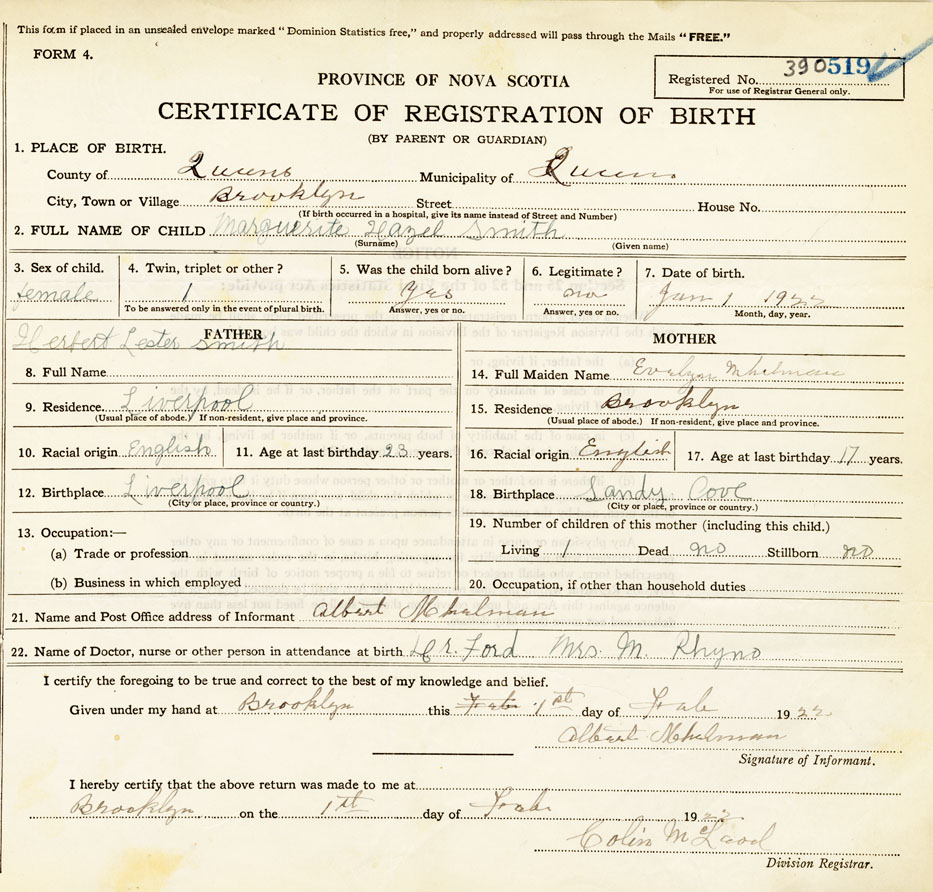 This form if placed in an unsealed envelope marked "Dominion Statistics free," and properly addressed will pass through the Mails "FREE."
FORM 4.
Registered No. 390519
For use of Registrar General only.
PROVINCE OF NOVA SCOTIA
CERTIFICATE OF REGISTRATION OF BIRTH
(BY PARENT OR GUARDIAN)
1. PLACE OF BIRTH.
County of Queens Municipality of Queens
City, Town or Village Brooklyn Street House No.
(If birth occurred in a hospital, give its name instead of Street and Number)
2. FULL NAME OF CHILD Marguerite Hazel Smith
(Surname) (Given name)
3. Sex of child. 4. Twin, triplet or other? 5. Was the child born alive? 6. Legitimate? 7. Date of birth.
female 1 yes no Jan 1 1922
To be answered only in the event of plural birth. Answer, yes or no. Answer, yes or no. Month, day, year.
FATHER MOTHER
Herbert Lester Smith
8. Full Name 14. Full Maiden Name Evelyn
9. Residence. Liverpool 15. Residence Brooklyn
(Usual place of abode.) If non-resident, give place and province. (Usual place of abode.) If non-resident, give place and province.
10. Racial origin English 11. Age at last birthday 23 years. 16. Racial origin English 17. Age at last birthday 17 years.
12. Birthplace Liverpool 18. Birthplace Sandy Cove
(City or place, province or country.) (City or place, province or country.)
13. Occupation:— 19. Number of children of this mother (including this child.)
(a) Trade or profession Living 1 Dead no Stillborn no
(b) Business in which employed 20. Occupation, if other than household duties
21. Name and Post Office address of Informant Albert
22. Name of Doctor, nurse or other person in attendance at birth Dr. Ford Mrs. M. Rhyno
I certify the foregoing to be true and correct to the best of my knowledge and belief.
Given under my hand at Brooklyn this 1st day of Feb 1922
Albert
Signature of Informant.
I hereby certify that the above return was made to me at
Brooklyn on the 1st day of Feb 1922
Colin McLeod
Division Registrar.